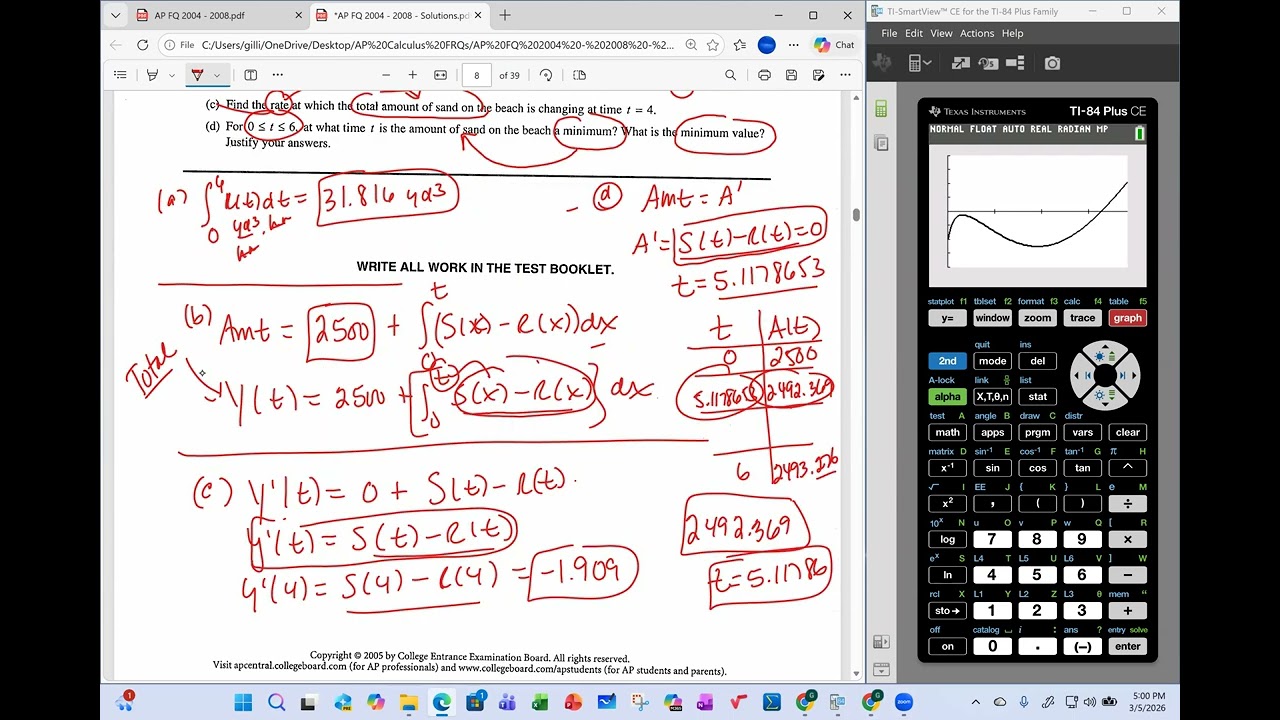 AP FQ 2004 - 2008.pdf
*AP FQ 2004 - 2008 - Solutions.pd
File
C:/Users/gilli/OneDrive/Desktop/AP%20Calculus%20FRQs/AP%20FQ%202004%20-%202008%20-%2...
Chat
8 of 39
(c) Find the rate at which the total amount of sand on the beach is changing at time t = 4.
(d) For 0 ≤ t ≤ 6, at what time t is the amount of sand on the beach a minimum? What is the minimum value?
Justify your answers.
(a) ∫₀⁴ R(t)dt = 31.816 yd³
yd³/hr · hr
WRITE ALL WORK IN THE TEST BOOKLET.
(b) Amt = 2500 + ∫₀ᵗ (S(x) - R(x))dx
Total
Y(t) = 2500 + [∫₀ᵗ S(x) - R(x)] dx
(c) Y'(t) = 0 + S(t) - R(t).
Y'(t) = S(t) - R(t)
Y'(4) = S(4) - R(4) = -1.909
(d) Amt = A'
A' = S(t) - R(t) = 0
t = 5.1178653
t A(t)
0 2500
5.1178653 2492.369
6 2493.276
2492.369
t = 5.11786
Copyright © 2005 by College Entrance Examination Board. All rights reserved.
Visit apcentral.collegeboard.com (for AP professionals) and www.collegeboard.com/apstudents (for AP students and parents).
TI-SmartView™ CE for the TI-84 Plus Family
File Edit View Actions Help
TEXAS INSTRUMENTS TI-84 Plus CE
NORMAL FLOAT AUTO REAL RADIAN MP
statplot f1 tblset f2 format f3 calc f4 table f5
y= window zoom trace graph
quit ins
2nd mode del
A-lock link list
alpha X,T,θ,n stat
test A angle B draw C distr
math apps prgm vars clear
matrix D sin⁻¹ E cos⁻¹ F tan⁻¹ G π H
x⁻¹ sin cos tan ^
√ I EE J { K } L e M
x² , ( ) ÷
10ˣ N u O v P w Q [ R
log 7 8 9 ×
eˣ S L4 T L5 U L6 V ] W
ln 4 5 6 −
rcl X L1 Y L2 Z L3 θ mem “
sto→ 1 2 3 +
off catalog i : ans ? entry solve
on 0 . (−) enter
1
1
zoom
5:00 PM
3/5/2026